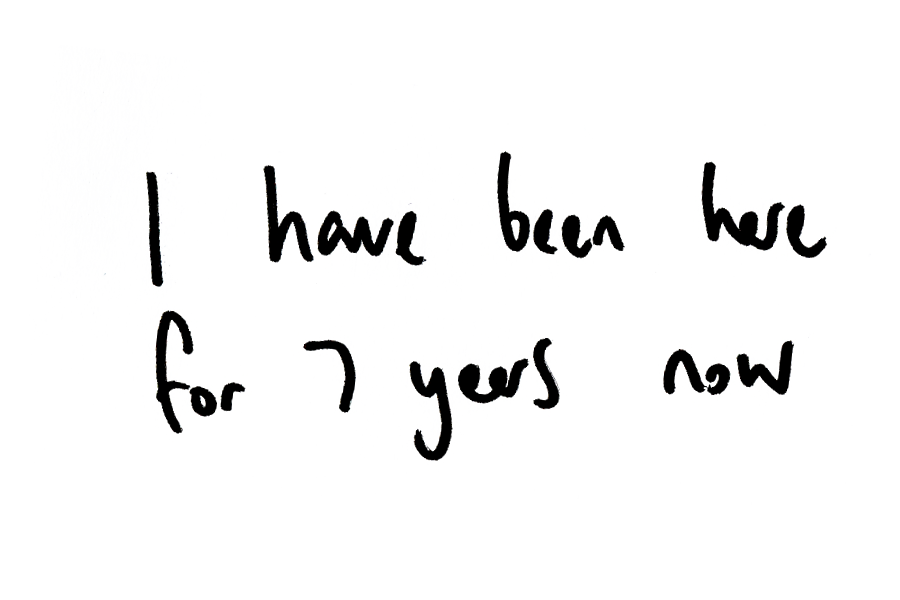 I have been here
for 7 years now